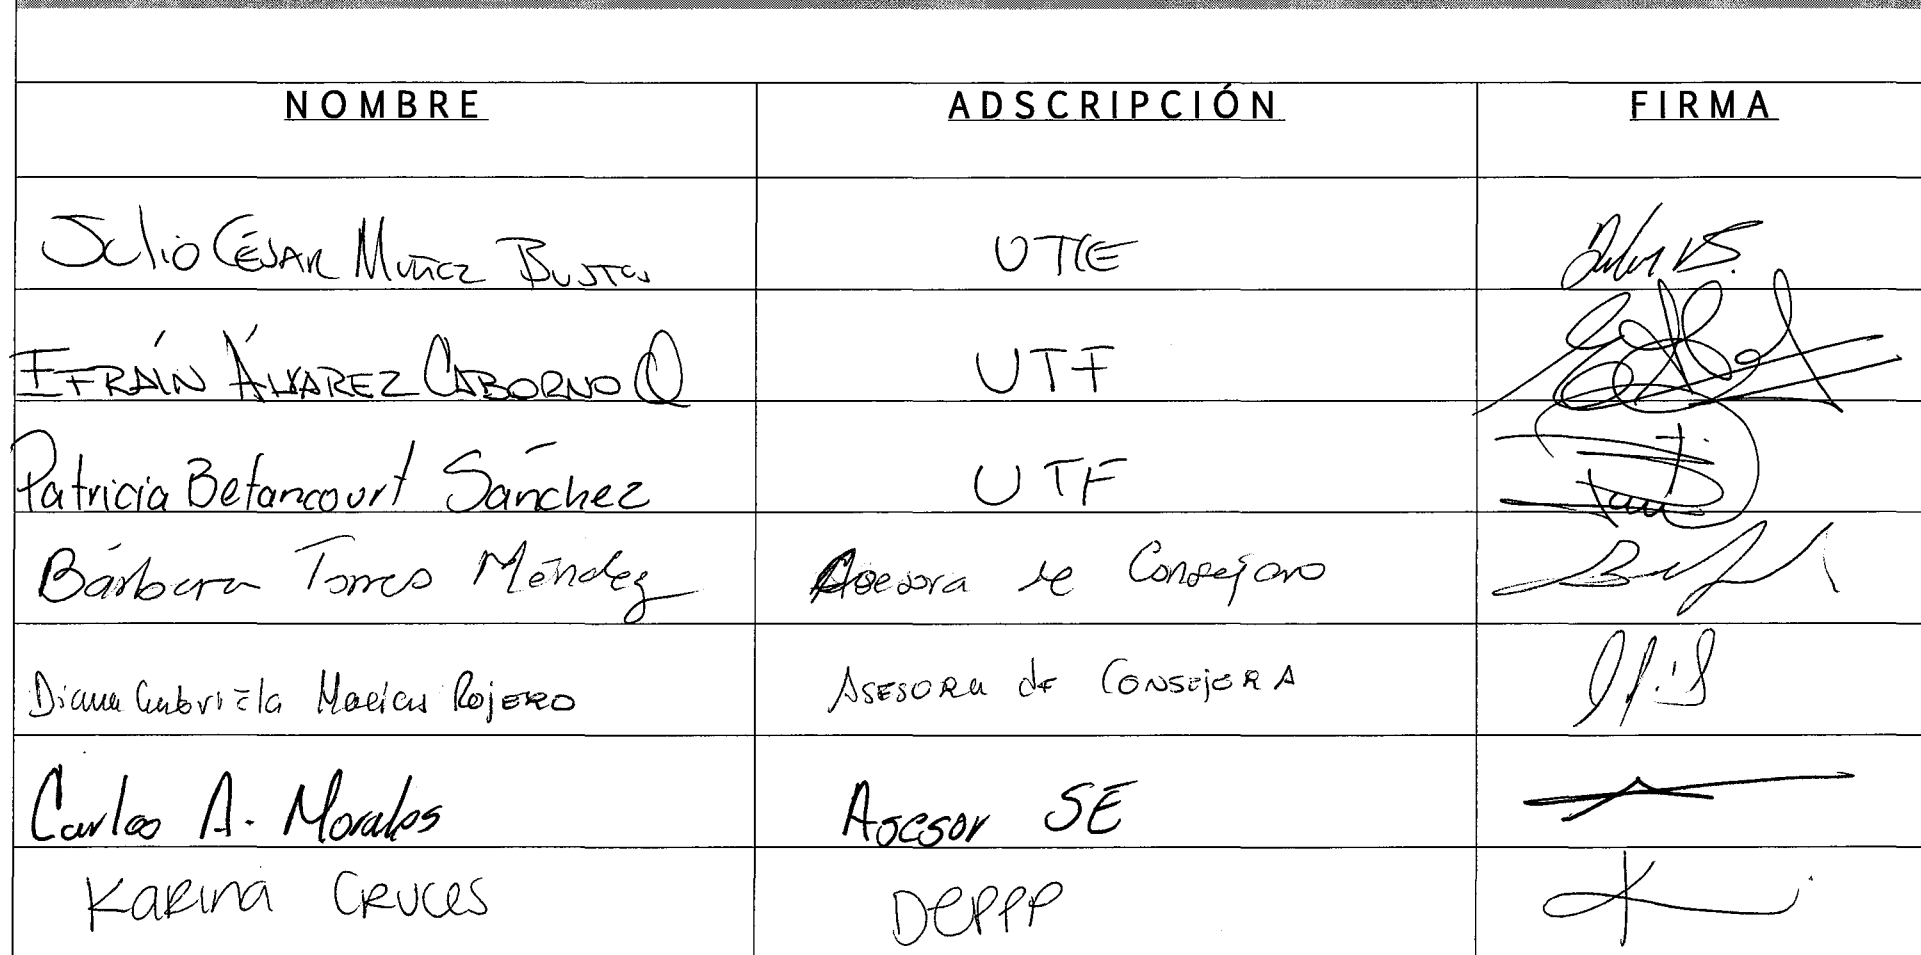 NOMBRE ADSCRIPCIÓN FIRMA
Julio César Muñoz Bustos UTCE
Efraín Álvarez Caborno O UTF
Patricia Betancourt Sánchez UTF
Bárbara Torres Méndez Asesora de Consejero
Diana Gabriela Macías Rojero Asesora de Consejera
Carlos A. Morales Asesor SE
Karina Cruces DEPPP